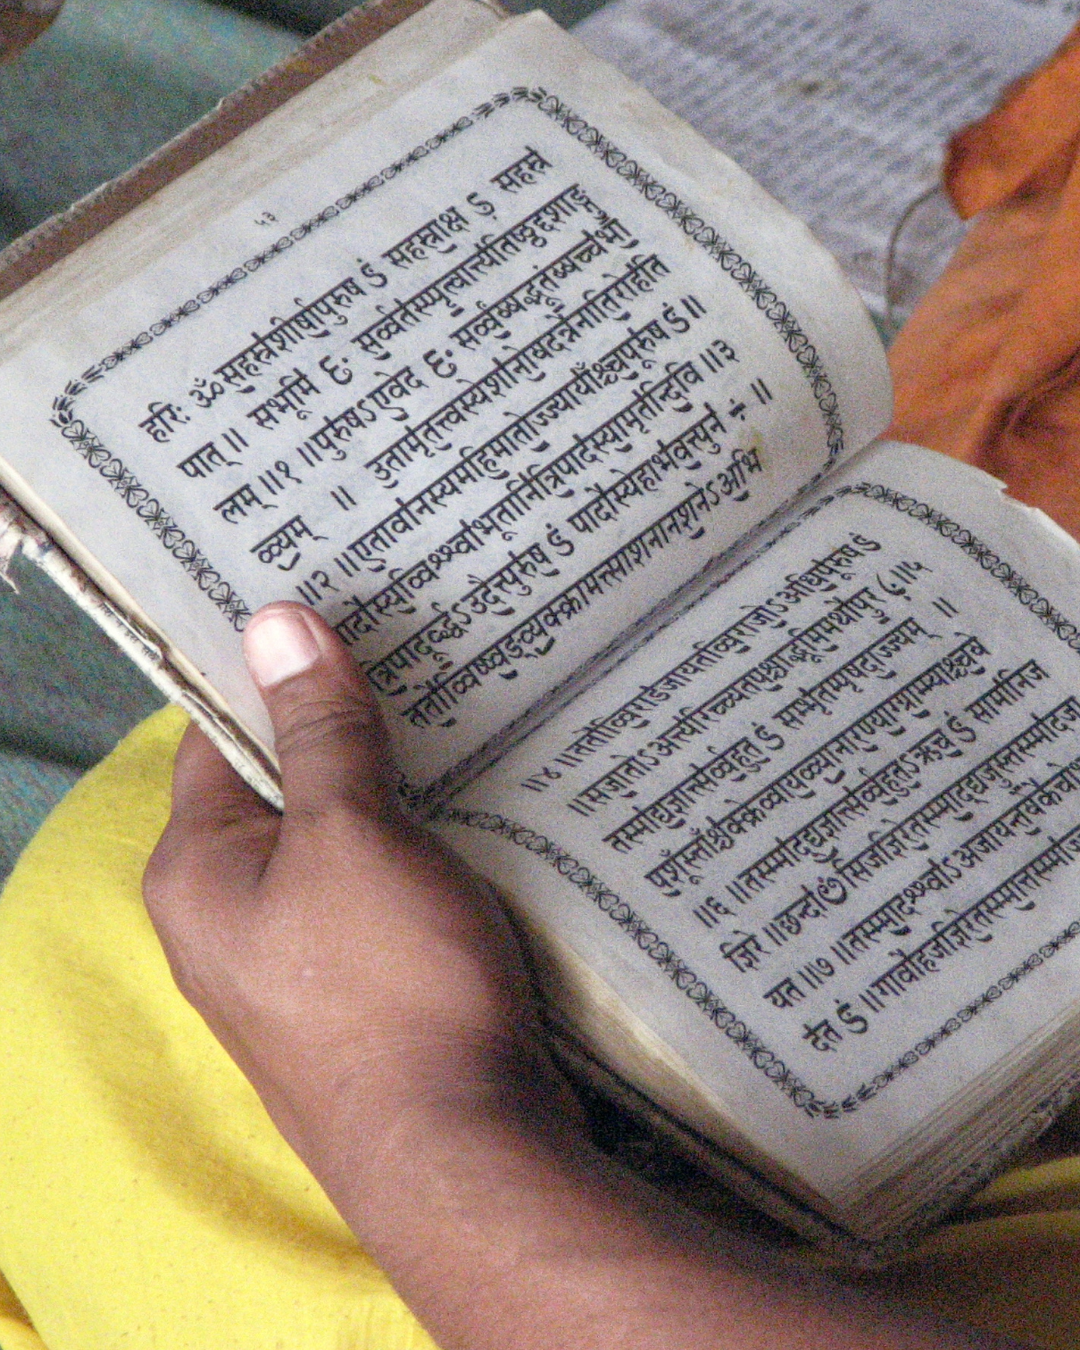 ५३
हरिः ॐ सहस्रशीर्षापुरुष ऽं सहस्राक्ष ऽ सहस्र
पात् ॥ सभूमि ६ं सर्व्वतस्प्पृत्वात्त्यतिष्ठ्ठद्दशाङ्गु
लम् ॥१ ॥पुरुषऽएवेद ६ं सर्व्वंय्यद्भूतंय्यच्चभा
व्यम् ॥ उतामृतत्त्वस्येशानोयदन्नेनातिरोहति
॥२ ॥एतावानस्यमहिमातोज्ज्यायाँश्च्चपूरुष ऽं॥
पादोस्यव्विश्श्वाभूतानित्रिपादस्यामृतन्दिवि ॥३
त्रिपादूर्द्ध्वऽउदैत्पुरुष ऽं पादोस्येहाभवत्त्पुन ऽं ॥
ततोव्विष्ष्वङ्व्यक्क्रामत्त्साशनानशनेऽअभि
॥४ ॥ततोव्विराडजायतव्विराजोऽअधिपूरुष ऽं
॥सजातोऽअत्त्यरिच्च्यतपश्च्चाद्भूमिमथोपुर ऽं॥५
तस्माद्यज्ञात्त्सर्व्वहुत ऽं सम्भृतम्पृषदाज्ज्यम् ॥
पशूँस्ताँश्च्चक्क्रेव्वायव्व्यानारण्याग्ग्राम्याश्च्चये
॥६ ॥तस्माद्यज्ञात्त्सर्व्वहुतऽऋच ऽं सामानिज
ज्ञिरे ॥छन्दाᳬसिजज्ञिरेतस्माद्यजुस्तस्मादजा
यत ॥७ ॥तस्मादश्श्वाऽअजायन्तयेकेचो
दत ऽं ॥गावोहजज्ञिरेतस्मात्तस्माज्जा